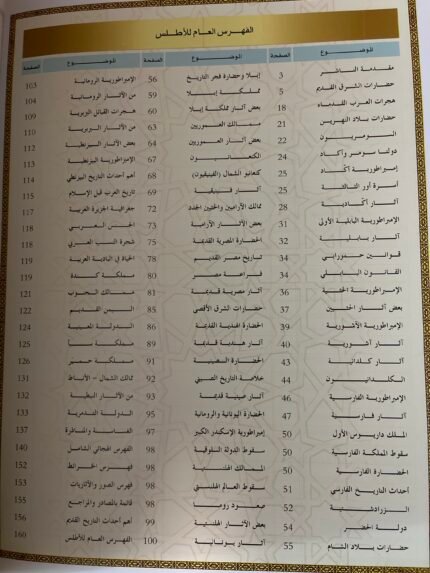 الفهرس العام للأطلس
الموضوع الصفحة
مقدمة الناشر 3
حضارات الشرق القديم 5
هجرات العرب القدماء 18
حضارات بلاد النهرين 21
السومريون 22
دولتا سومر وأكاد 24
إمبراطورية أكاد 25
أسرة أور الثالثة 25
آثار أكادية 28
الإمبراطورية البابلية الأولى 31
آثار بابلية 32
قوانين حمورابي 34
القانون البابلي 34
الإمبراطورية الحثية 36
بعض آثار الحثيين 37
الإمبراطورية الآشورية 39
آثار آشورية 40
آثار كلدانية 43
الكلدانيون 44
الإمبراطورية الفارسية 46
آثار فارسية 47
الملك داريوس الأول 50
سقوط المملكة الفارسية 50
الحضارة الفارسية 50
أحداث التاريخ الفارسي 51
الزرادشتية 52
دولة الحضر 54
حضارات بلاد الشام 55
الموضوع الصفحة
إبلا وحضارة فجر التاريخ 56
مملكة إبلا 57
بعض آثار مملكة إبلا 60
ممالك العموريين 63
بعض آثار العموريين 64
الكنعانيون 67
كنعانيو الشمال (الفينيقيون) 68
آثار فينيقية 69
ممالك الآراميين والحثيين الجدد 72
بعض الآثار الآرامية 73
الحضارة المصرية القديمة 75
تاريخ مصر القديم 78
فراعنة مصر 80
آثار مصرية قديمة 81
حضارات الشرق الأقصى 85
الحضارة الهندية القديمة 86
آثار هندية قديمة 89
الحضارة الصينية 91
خلاصة التاريخ الصيني 92
آثار صينية قديمة 93
الحضارة اليونانية والرومانية 95
إمبراطورية الإسكندر الكبير 97
سقوط الدولة السلوقية 98
الممالك الهلنستية 98
سقوط العالم الهلنستي 98
صعود روما 98
بعض الآثار الهلنستية 99
آثار يونانية 100
الموضوع الصفحة
الإمبراطورية الرومانية 103
من الآثار الرومانية 104
هجرات القبائل البربرية 109
من الآثار البربرية 110
بعض الآثار البيزنطية 112
الإمبراطورية البيزنطية 113
أهم أحداث التاريخ البيزنطي 114
تاريخ العرب قبل الإسلام 115
جغرافية الجزيرة العربية 117
الجنس العربي 118
شجرة النسب العربي 118
الحياة في البادية العربية 119
مملكة كندة 119
ممالك الجنوب 121
اليمن القديم 122
الدولة المعينية 124
مملكة سبأ 125
مملكة حمير 126
ممالك الشمال – الأنباط 131
من الآثار النبطية 132
الدولة التدمرية 133
الغساسنة والمناذرة 137
الفهرس الهجائي الشامل 140
فهرس الخرائط 152
فهرس الصور والأثريات 153
قائمة بالمصادر والمراجع 155
أهم أحداث التاريخ القديم 156
الفهرس العام للأطلس 160